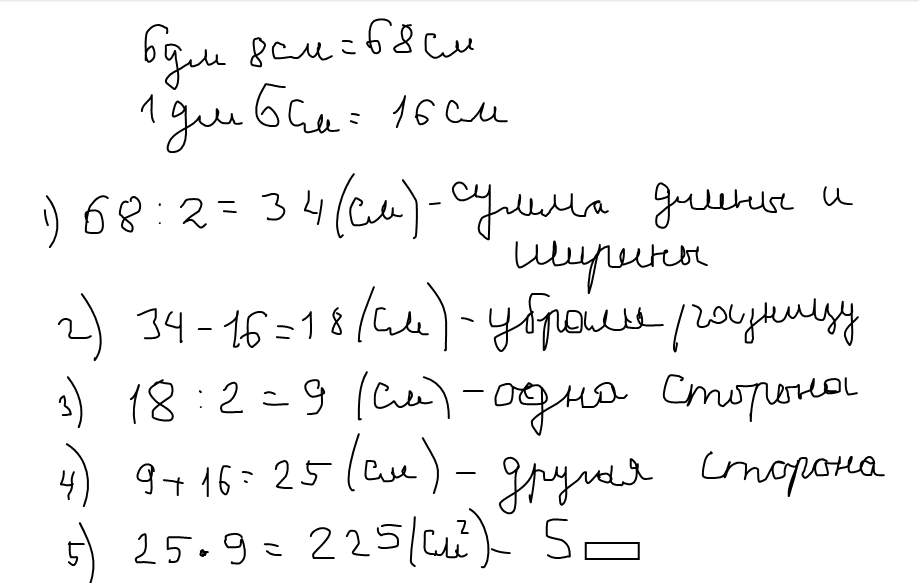 6дм 8см = 68см
1дм 6см = 16см
1) 68 : 2 = 34 (см) - сумма длины и
ширины
2) 34 - 16 = 18 (см) - убрали разницу
3) 18 : 2 = 9 (см) - одна сторона
4) 9 + 16 = 25 (см) - другая сторона
5) 25 · 9 = 225 (см²) - S